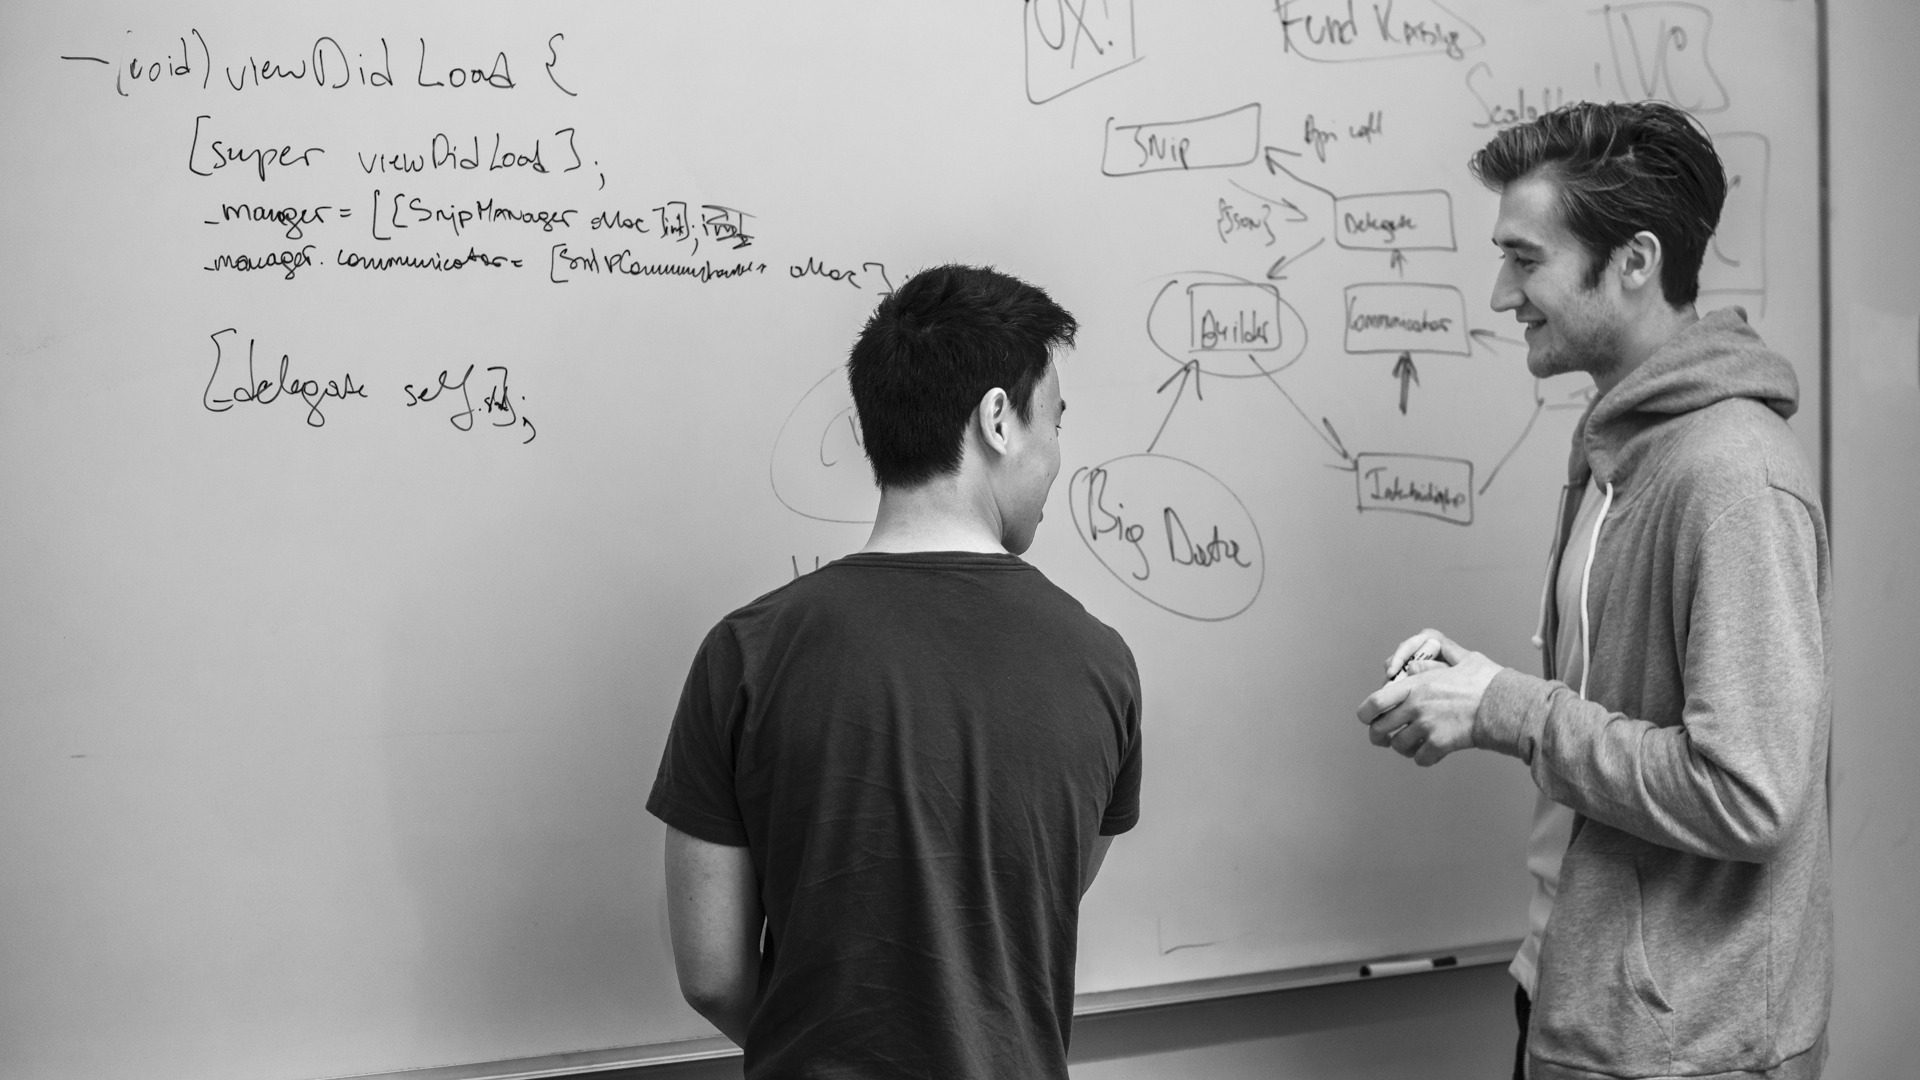 -(void) viewDidLoad {
[super viewDidLoad];
_manager = [[SnipManager alloc] init];
_manager.communicator = [SnipCommunicator alloc];
[delegate self
UX!
Fund Raising
VC
Snip
Api call
{Json}
Delegate
Builder
Communicator
Big Data